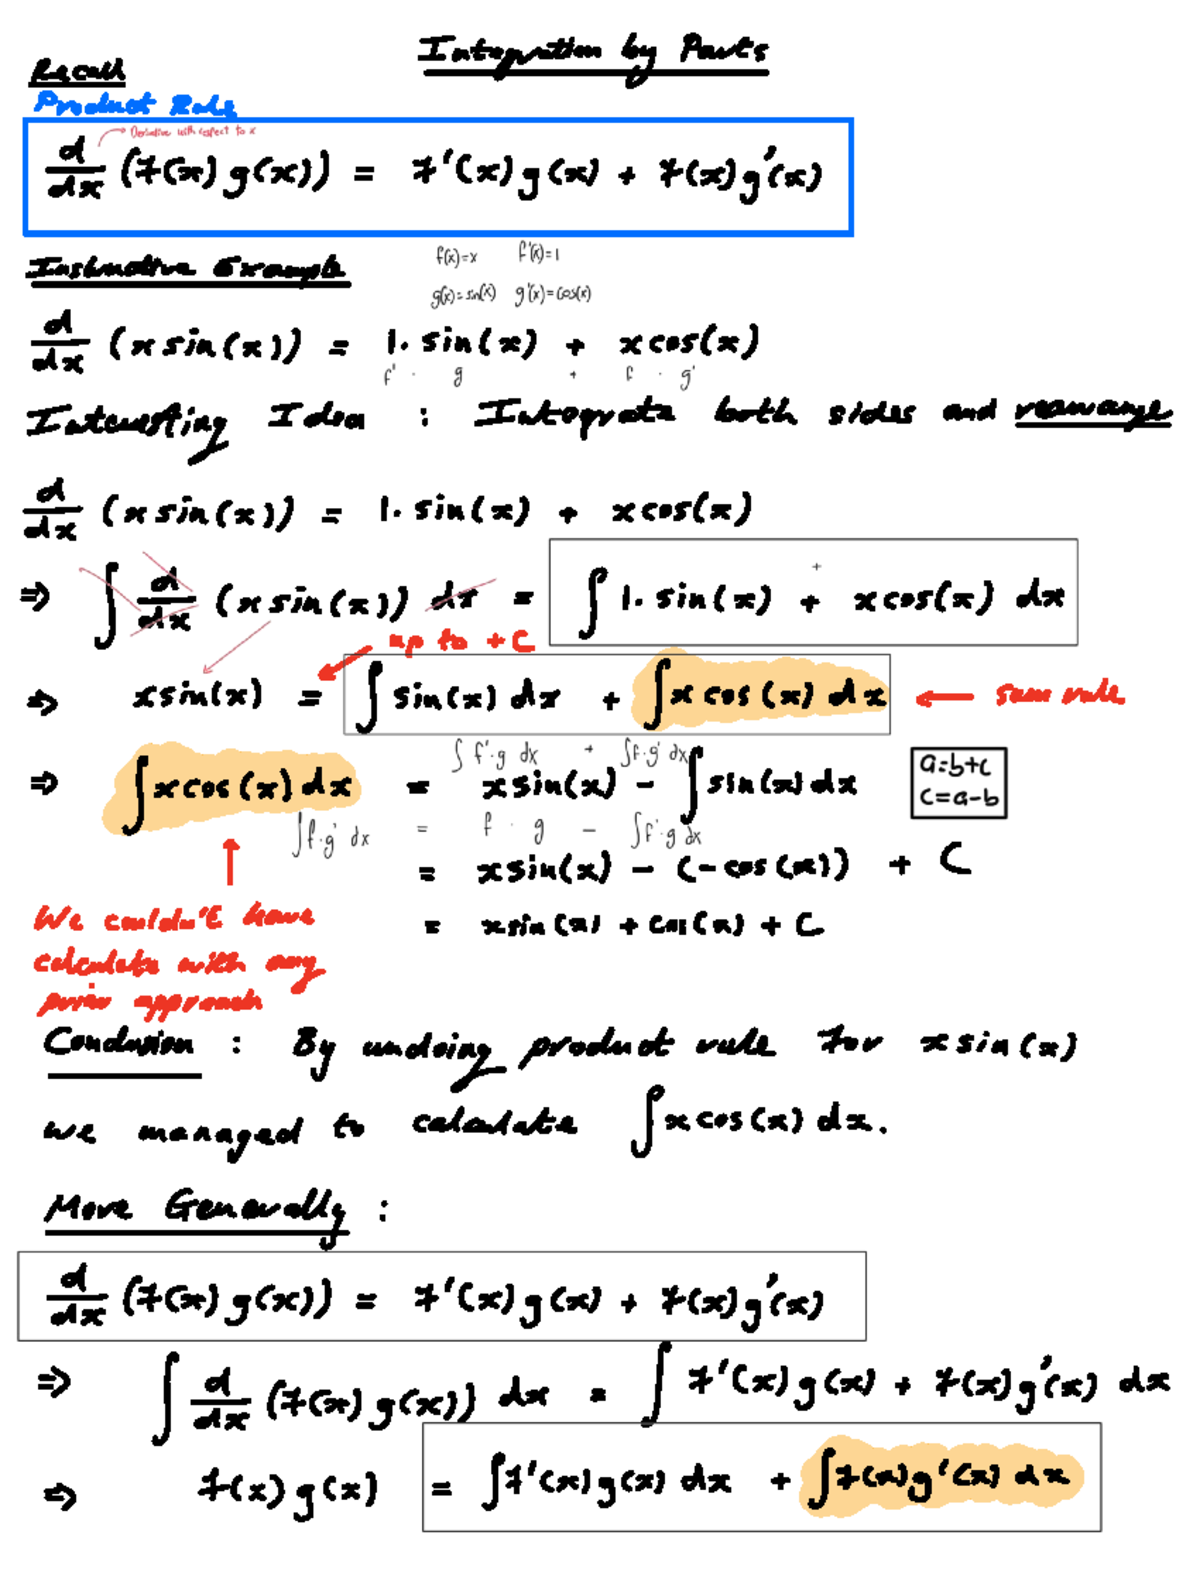 Integration by Parts
Recall
Product Rule
Derivative with respect to x
d/dx (f(x) g(x)) = f'(x) g(x) + f(x) g'(x)
f(x)=x f'(x)=1
Instructive Example
g(x)=sin(x) g'(x)=cos(x)
d/dx (x sin(x)) = 1. sin(x) + x cos(x)
f' · g + f · g'
Interesting Idea : Integrate both sides and rearrange
d/dx (x sin(x)) = 1. sin(x) + x cos(x)
+
⇒ ∫ d/dx (x sin(x)) dx = ∫ 1. sin(x) + x cos(x) dx
up to + C
⇒ x sin(x) = ∫ sin(x) dx + ∫ x cos(x) dx ← same rule
∫ f'·g dx + ∫ f·g' dx
⇒ ∫ x cos(x) dx = x sin(x) - ∫ sin(x) dx
a=b+c
c=a-b
∫ f·g' dx = f · g - ∫ f'·g dx
= x sin(x) - (-cos(x)) + C
We couldn't have
calculate with any
prior approach
= x sin(x) + cos(x) + C
Conclusion : By undoing product rule for x sin(x)
we managed to calculate ∫ x cos(x) dx.
More Generally :
d/dx (f(x) g(x)) = f'(x) g(x) + f(x) g'(x)
⇒ ∫ d/dx (f(x) g(x)) dx = ∫ f'(x) g(x) + f(x) g'(x) dx
⇒ f(x) g(x) = ∫ f'(x) g(x) dx + ∫ f(x) g'(x) dx